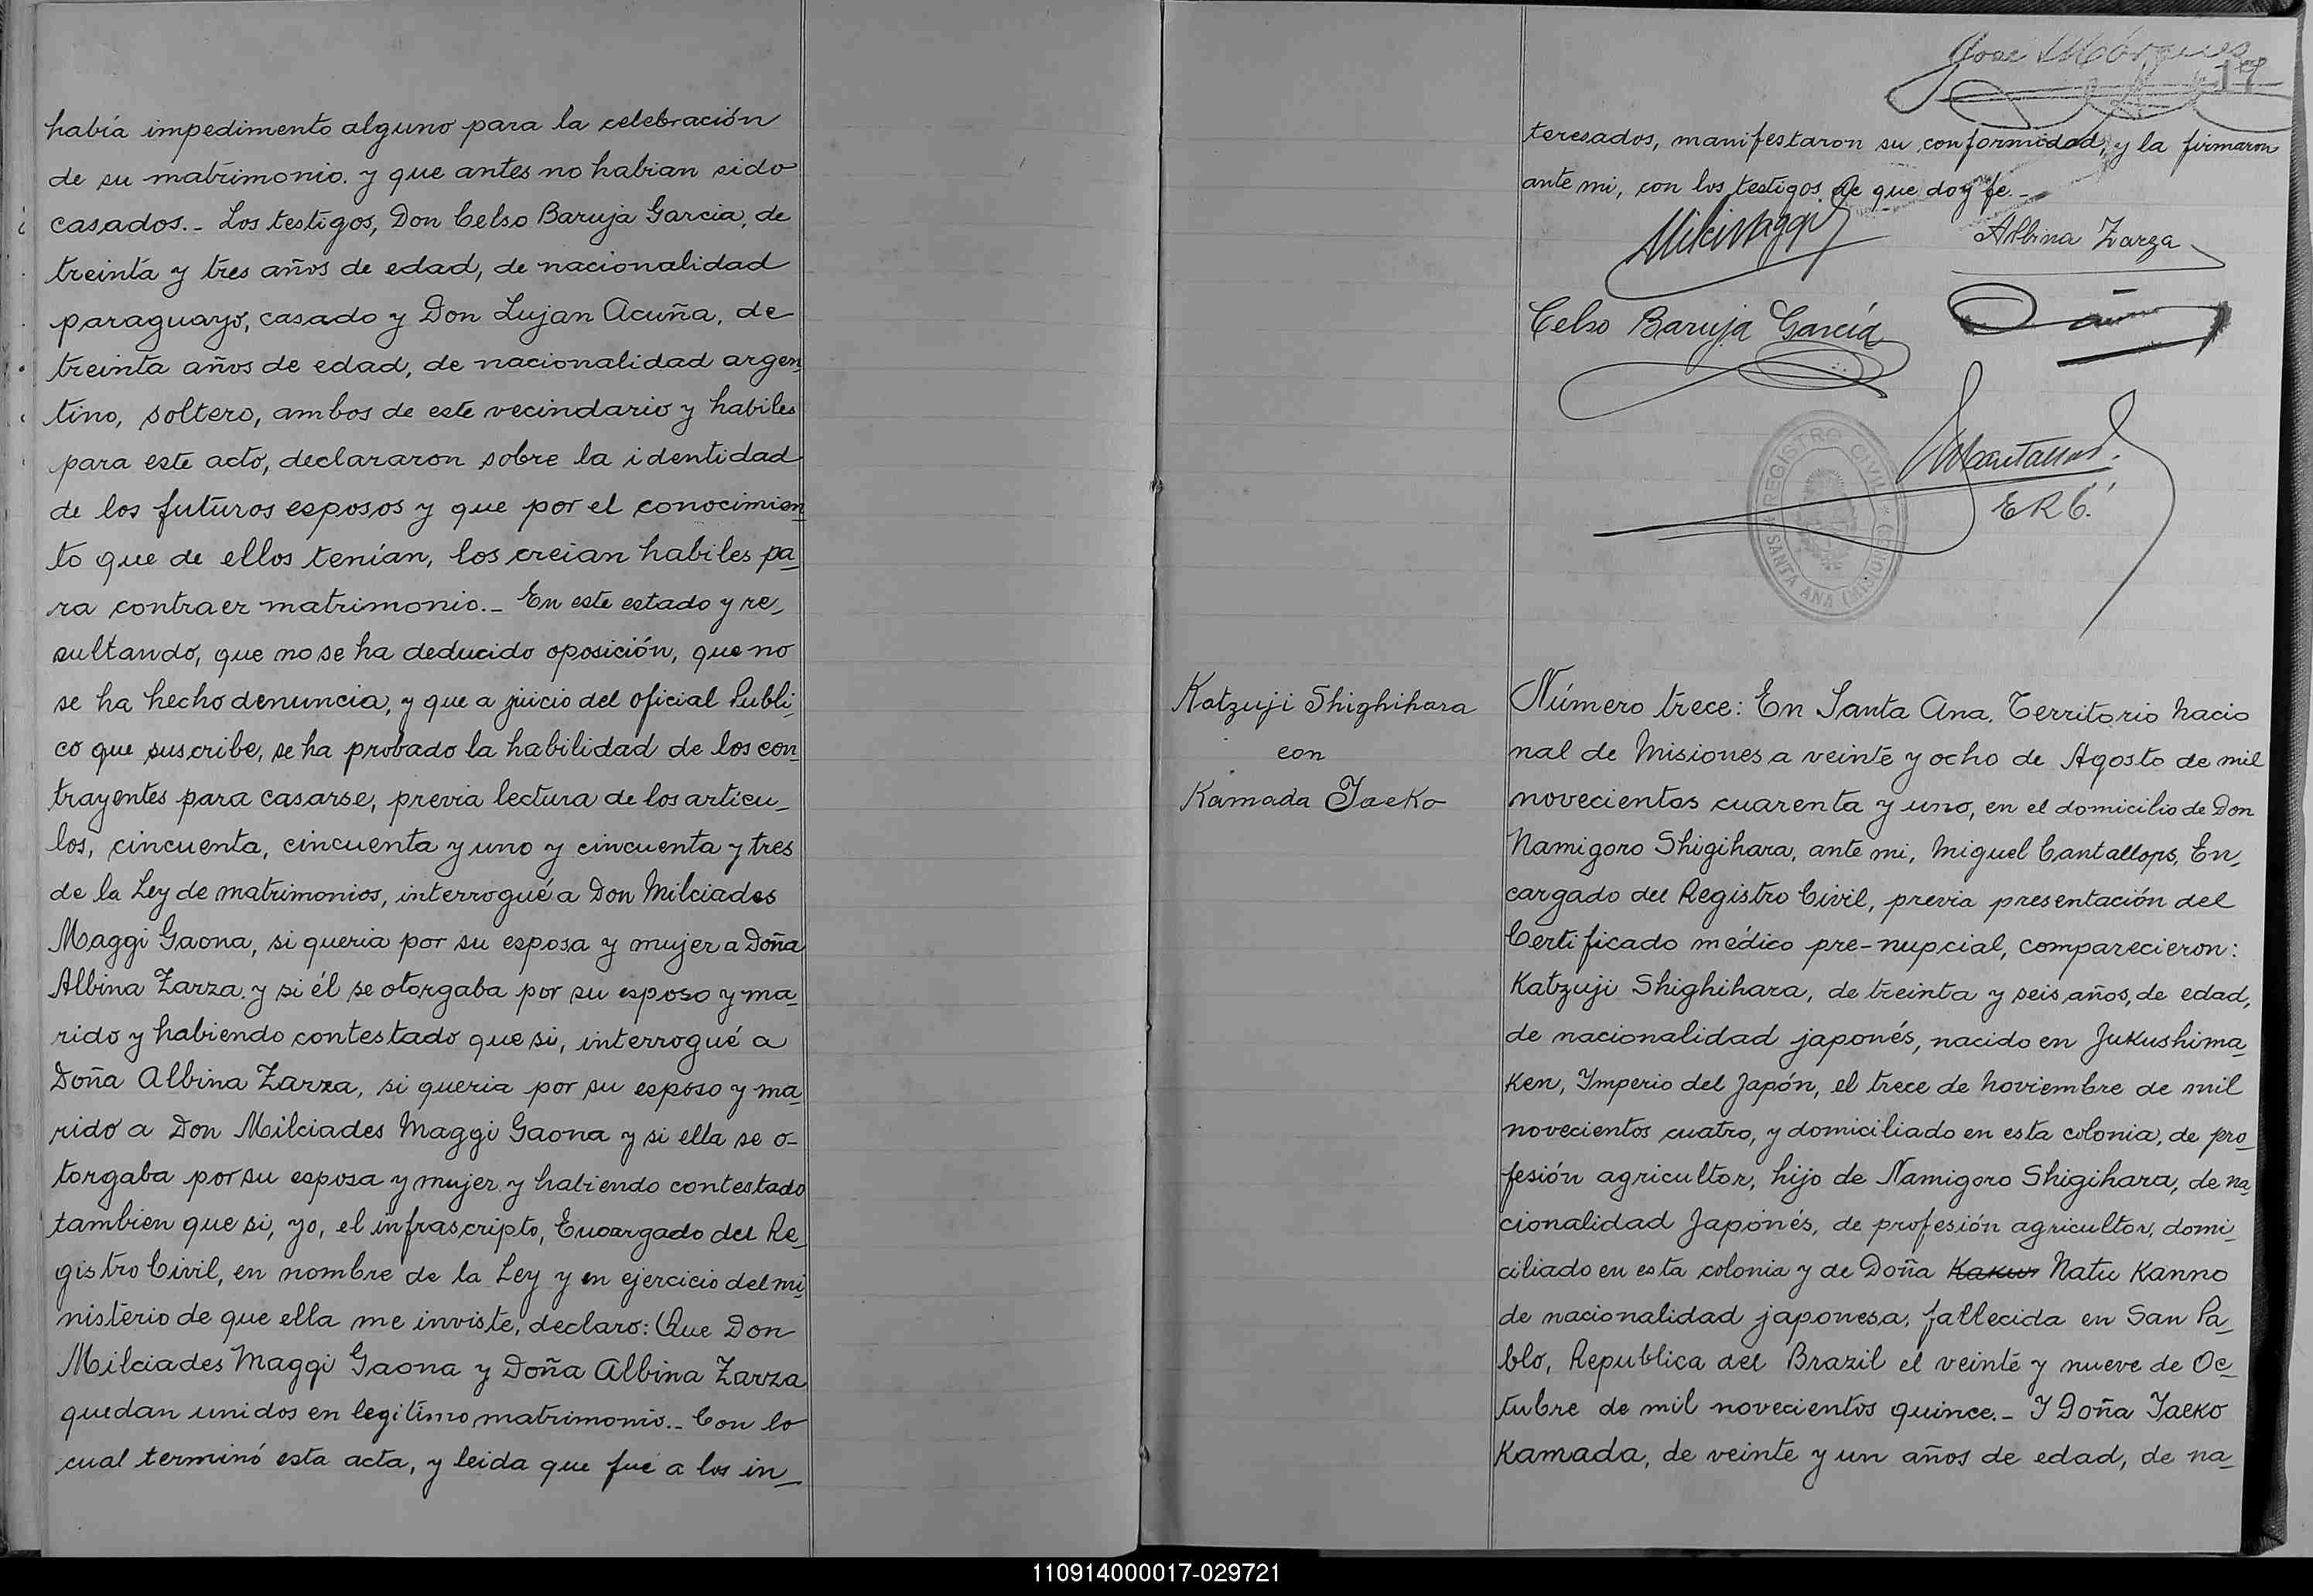 había impedimento alguno para la celebración
de su matrimonio. y que antes no habian sido
casados.- Los testigos, Don Celso Baruja Garcia, de
treinta y tres años de edad, de nacionalidad
paraguayo, casado y Don Lujan Acuña, de
treinta años de edad, de nacionalidad argen
tino, soltero, ambos de este vecindario y habiles
para este acto, declararon sobre la identidad
de los futuros esposos y que por el conocimien
to que de ellos tenían, los creian habiles pa
ra contraer matrimonio.- En este estado y re-
sultando, que no se ha deducido oposición, que no
se ha hecho denuncia, y que a juicio del oficial Publi-
co que suscribe, se ha probado la habilidad de los con-
trayentes para casarse, previa lectura de los articu-
los, cincuenta, cincuenta y uno y cincuenta y tres
de la Ley de matrimonios, interrogué a Don Milciades
Maggi Gaona, si queria por su esposa y mujer a Doña
Albina Zarza. y si él se otorgaba por su esposo y ma-
rido y habiendo contestado que si, interrogué a
Doña Albina Zarza, si queria por su esposo y ma-
rido a Don Milciades Maggi Gaona y si ella se o-
torgaba por su esposa y mujer y habiendo contestado
tambien que si, yo, el infrascripto, Encargado del Re-
gistro Civil, en nombre de la Ley y en ejercicio del mi-
nisterio de que ella me inviste, declaro: Que Don
Milciades Maggi Gaona y Doña Albina Zarza
quedan unidos en legitimo matrimonio.- Con lo
cual terminó esta acta, y leida que fué a los in-
17
teresados, manifestaron su conformidad, y la firmaron
ante mi, con los testigos de que doy fe.-
Albina Zarza
Celso Baruja García
E R C.
REGISTRO CIVIL
SANTA ANA (MISIONES)
Katzuji Shighihara
con
Kamada Taeko
Número trece: En Santa Ana, Territorio Nacio
nal de Misiones a veinte y ocho de Agosto de mil
novecientos cuarenta y uno, en el domicilio de Don
Namigoro Shigihara, ante mi, Miguel Cantallops, En-
cargado del Registro Civil, previa presentación del
Certificado médico pre-nupcial, comparecieron:
Katzuji Shighihara, de treinta y seis años, de edad,
de nacionalidad japonés, nacido en Jukushima
Ken, Ymperio del Japón, el trece de Noviembre de mil
novecientos cuatro, y domiciliado en esta colonia, de pro-
fesión agricultor, hijo de Namigoro Shigihara, de na-
cionalidad Japonés, de profesión agricultor, domi-
ciliado en esta colonia y de Doña Natu Kanno
de nacionalidad japonesa, fallecida en San Pa-
blo, Republica del Brazil el veinte y nueve de Oc-
tubre de mil novecientos quince.- Y Doña Taeko
Kamada, de veinte y un años de edad, de na-
110914000017-029721